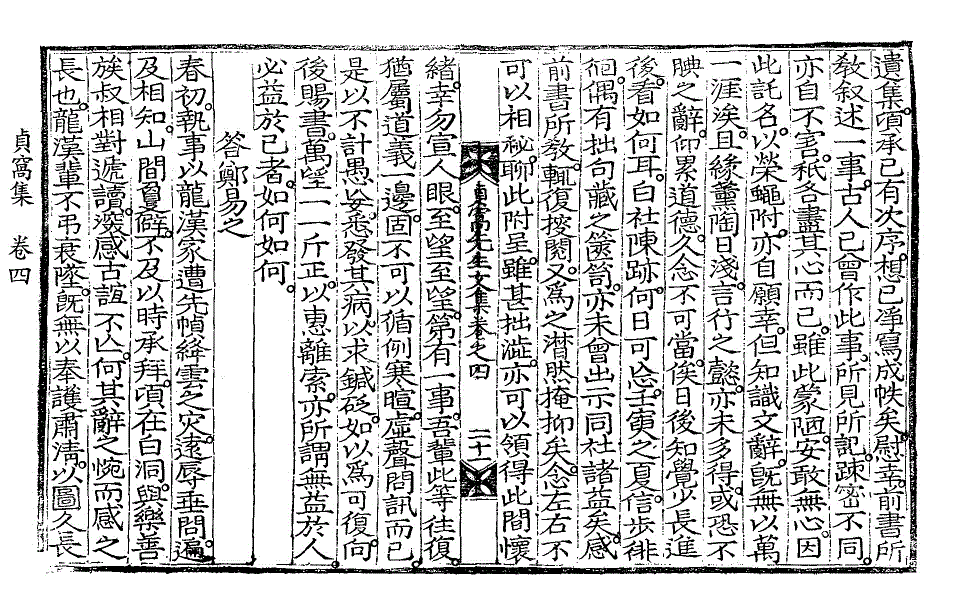 遺集頃承已有次序想已淨寫成帙矣慰幸前書所
敎叙述一事古人已曾作此事所見所記疎密不同
亦自不害秪各盡其心而已雖此蒙陋安敢無心因
此託名以榮蠅附亦自願幸但知識文辭旣無以萬
一涯涘且緣薰陶日淺言行之懿亦未多得或恐不
腆之辭仰累道德久念不可當俟日後知覺少長進
後看如何耳白社陳跡何日可忘壬寅之夏信步徘
徊偶有拙句藏之篋笥亦未曾出示同社諸益矣感
前書所敎輒復按閱又爲之潸然掩抑矣念左右不
可以相秘聊此附呈雖甚拙澁亦可以領得此間懷
貞窩先生文集卷之四 二十一
緖幸勿宣人眼至望至望第有一事吾輩此等往復
猶屬道義一邊固不可以循例寒暄虛聲問訊而已
是以不計愚妄悉發其病以求鍼砭如以爲可復向
後賜書萬望一一斤正以惠離索亦所謂無益於人
必益於己者如何如何
答鄭易之
春初執事以龍漢家遭先幀絳雲之灾遠辱垂問遍
及相知山間敻僻不及以時承拜頃在白洞與樂善
族叔相對遞讀濲感古誼不亾何其辭之惋而感之
長也龍漢輩不弔衰墜旣無以奉護肅淸以圖久長
貞窩集 卷四